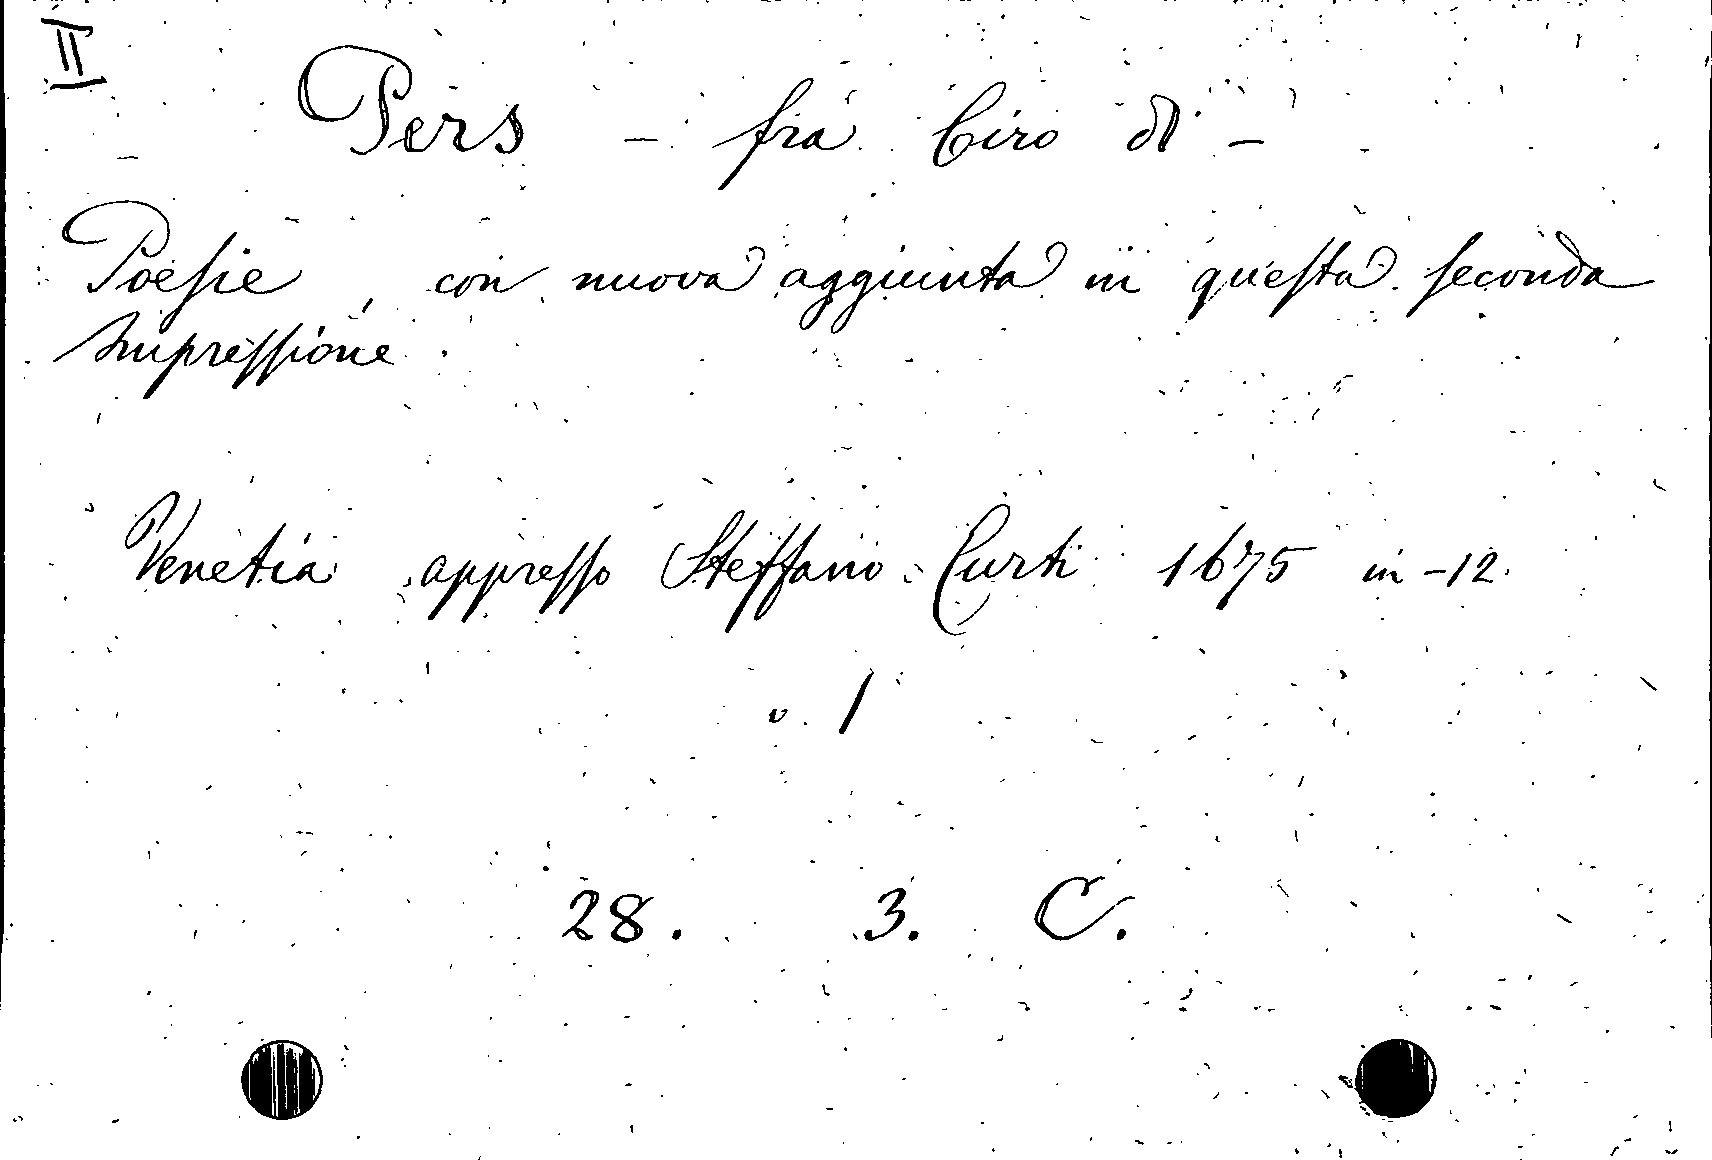 II
Pers - fra Ciro di -
Poesie, con nuova aggiunta in questa seconda
Impressione
Venetia appresso Steffano Curti 1675 in-12.
v. 1
28. 3. C.